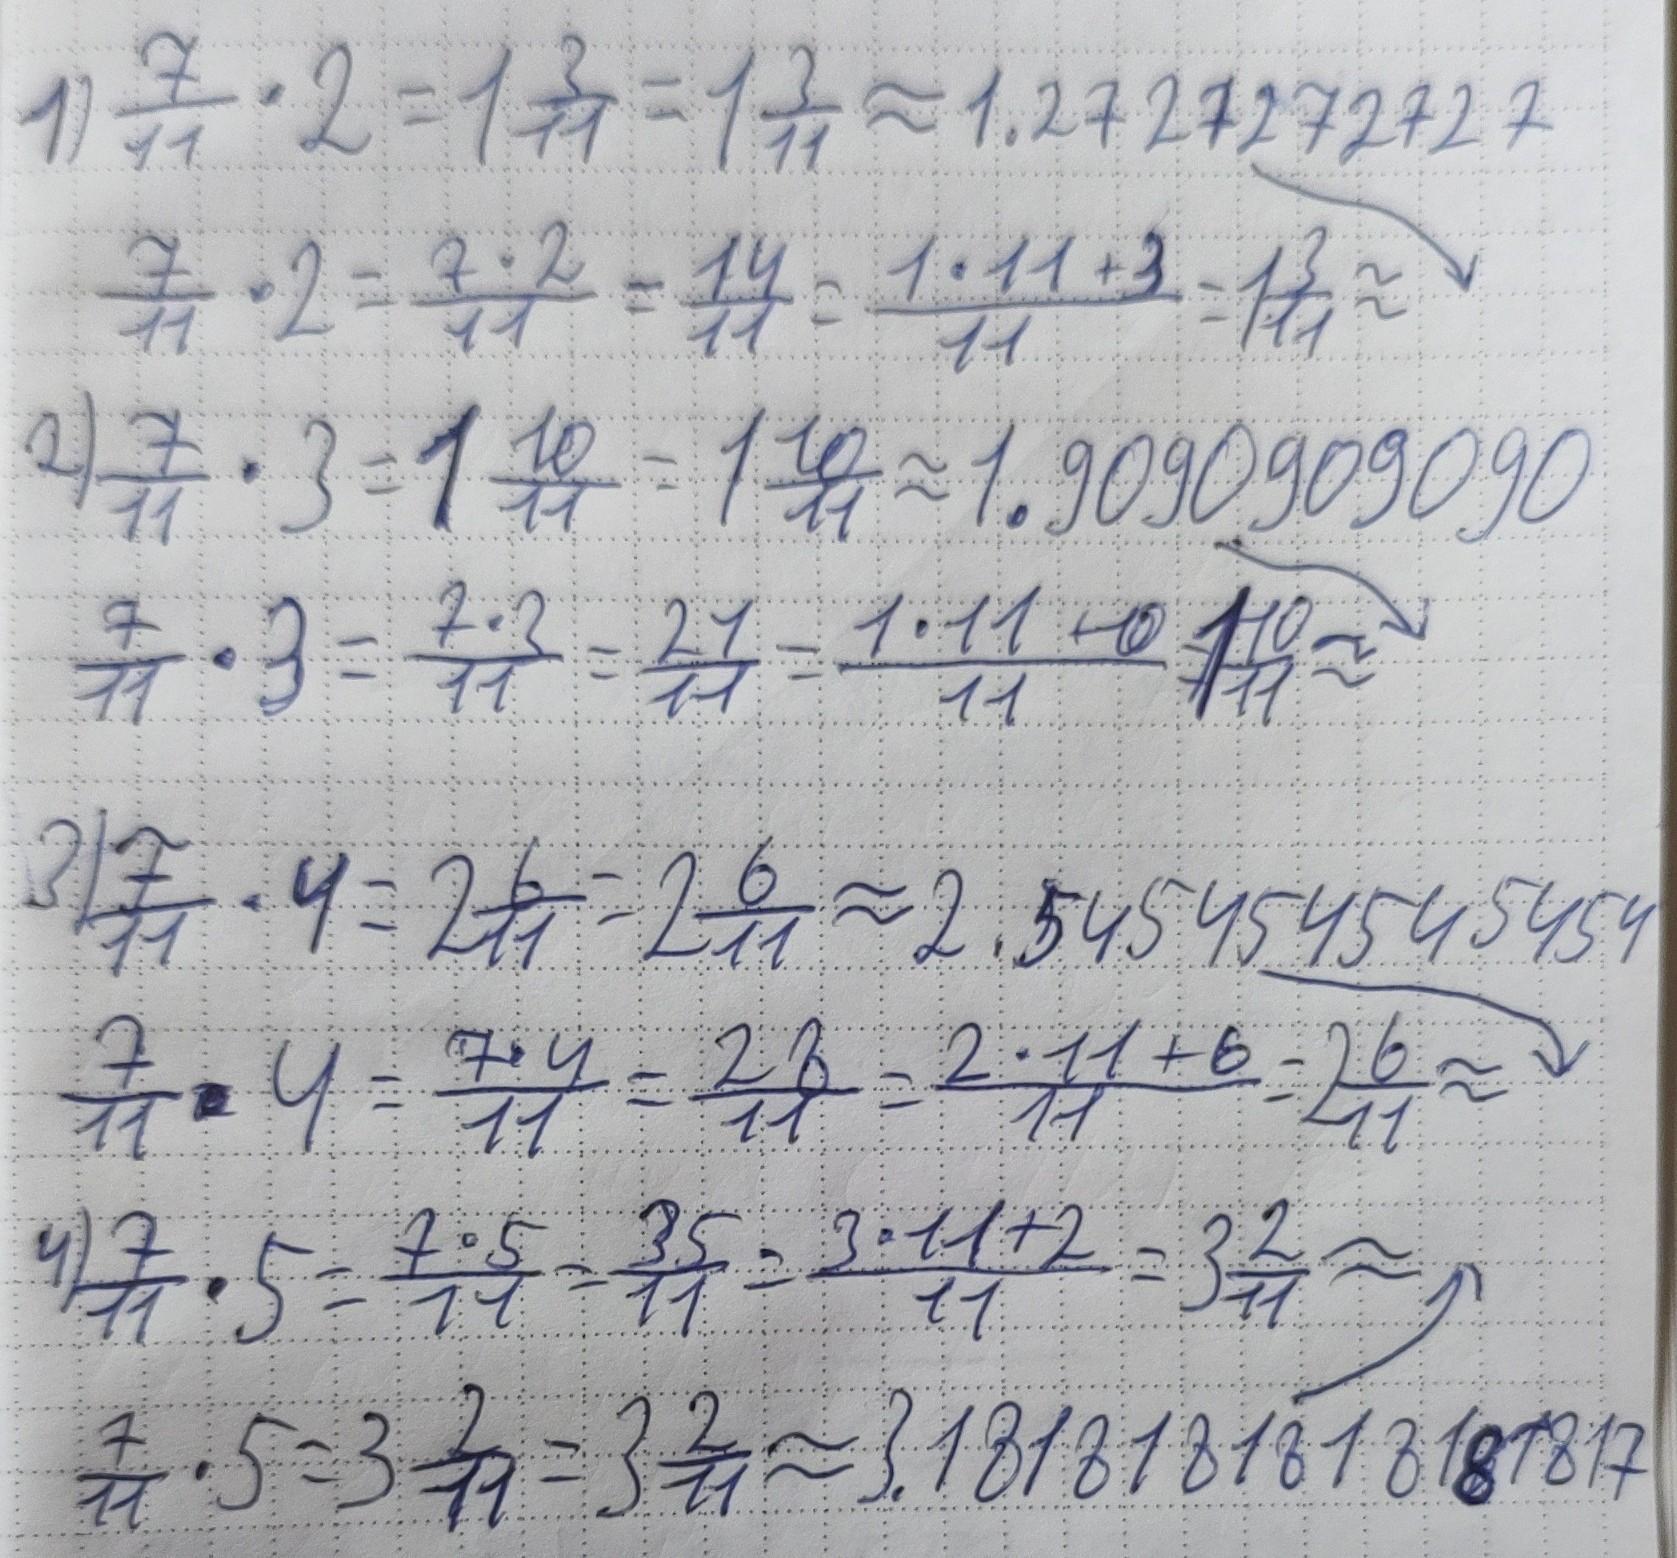 1) 7/11 · 2 = 1 3/11 = 1 3/11 ≈ 1.2727272727
7/11 · 2 = 7·2/11 = 14/11 = 1·11+3/11 = 1 3/11 ≈
2) 7/11 · 3 = 1 10/11 = 1 10/11 ≈ 1.9090909090
7/11 · 3 = 7·3/11 = 21/11 = 1·11+10/11 = 1 10/11 ≈
3) 7/11 · 4 = 2 6/11 = 2 6/11 ≈ 2.545454545454
7/11 · 4 = 7·4/11 = 28/11 = 2·11+6/11 = 2 6/11 ≈
4) 7/11 · 5 = 7·5/11 = 35/11 = 3·11+2/11 = 3 2/11 ≈
7/11 · 5 = 3 2/11 = 3 2/11 ≈ 3.1818181818181817